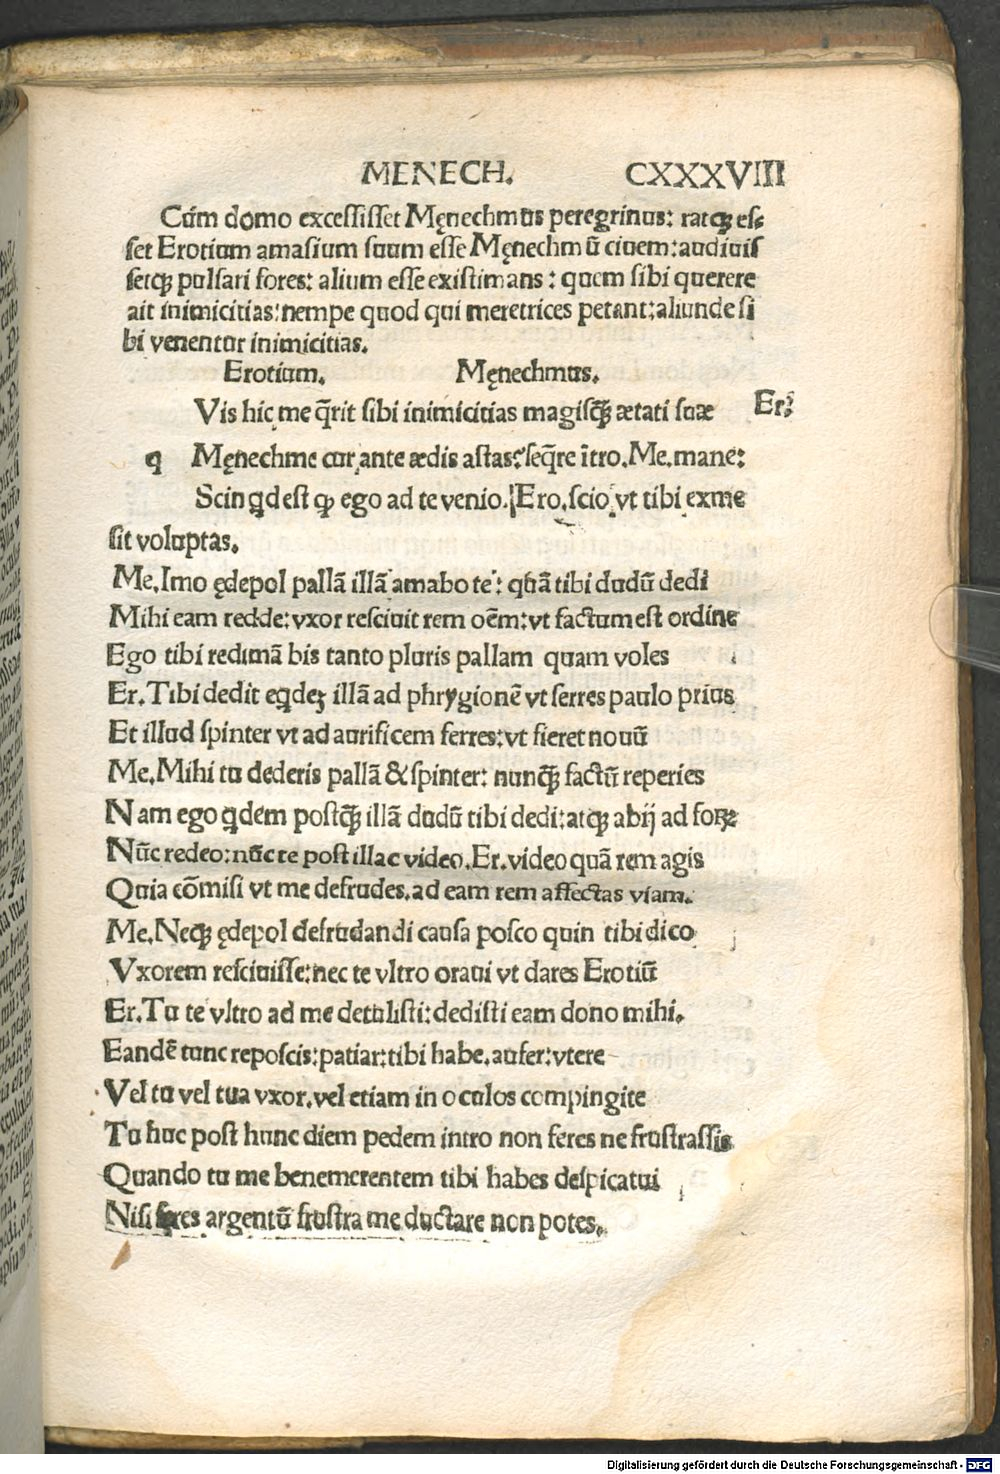 MENECH. CXXXVIII
Cum domo excessisset Męnechmus peregrinus: ratqꝫ es-
set Erotium amasium suum esse Męnechmū ciuem: audiuis
setqꝫ pulsari fores: alium esse existimans: quem sibi querere
ait inimicitias: nempe quod qui meretrices petant: aliunde si
bi venentur inimicitias.
Erotium. Męnechmus.
Vis hic me q̄rit sibi inimicitias magisqꝫ ætati suæ Er:
q Męnechme cur ante ædis astas: seq̄re ītro. Me. mane:
Scin qd est qꝫ ego ad te venio. Ero. scio vt tibi ex me
sit voluptas.
Me. Imo ędepol pallā illā amabo te: quā tibi dudū dedi
Mihi eam redde: vxor resciuit rem oēm: vt factum est ordine
Ego tibi redimā bis tanto pluris pallam quam voles
Er. Tibi dedit eqdeꝫ illā ad phrygionē vt ferres paulo prius
Et illud spinter vt ad aurificem ferres: vt fieret nouū
Me. Mihi tu dederis pallā & spinter: nunqꝫ factū reperies
Nam ego qdem postqꝫ illā dudū tibi dedi: atqꝫ abij ad foꝝ
Nūc redeo: nūc te post illac video. Er. video quā rem agis
Quia cōmisi vt me defrudes. ad eam rem affectas viam.
Me. Neqꝫ ędepol defrudandi causa posco quin tibi dico
Vxorem resciuisse: nec te vltro oraui vt dares Erotiū
Er. Tu te vltro ad me detulisti: dedisti eam dono mihi.
Eandē tunc reposcis: patiar: tibi habe. aufer: vtere
Vel tu vel tua vxor. vel etiam in oculos compingite
Tu huc post hunc diem pedem intro non feres ne frustrassis
Quando tu me benemerentem tibi habes despicatui
Nisi feres argentū frustra me ductare non potes.
Digitalisierung gefördert durch die Deutsche Forschungsgemeinschaft - DFG